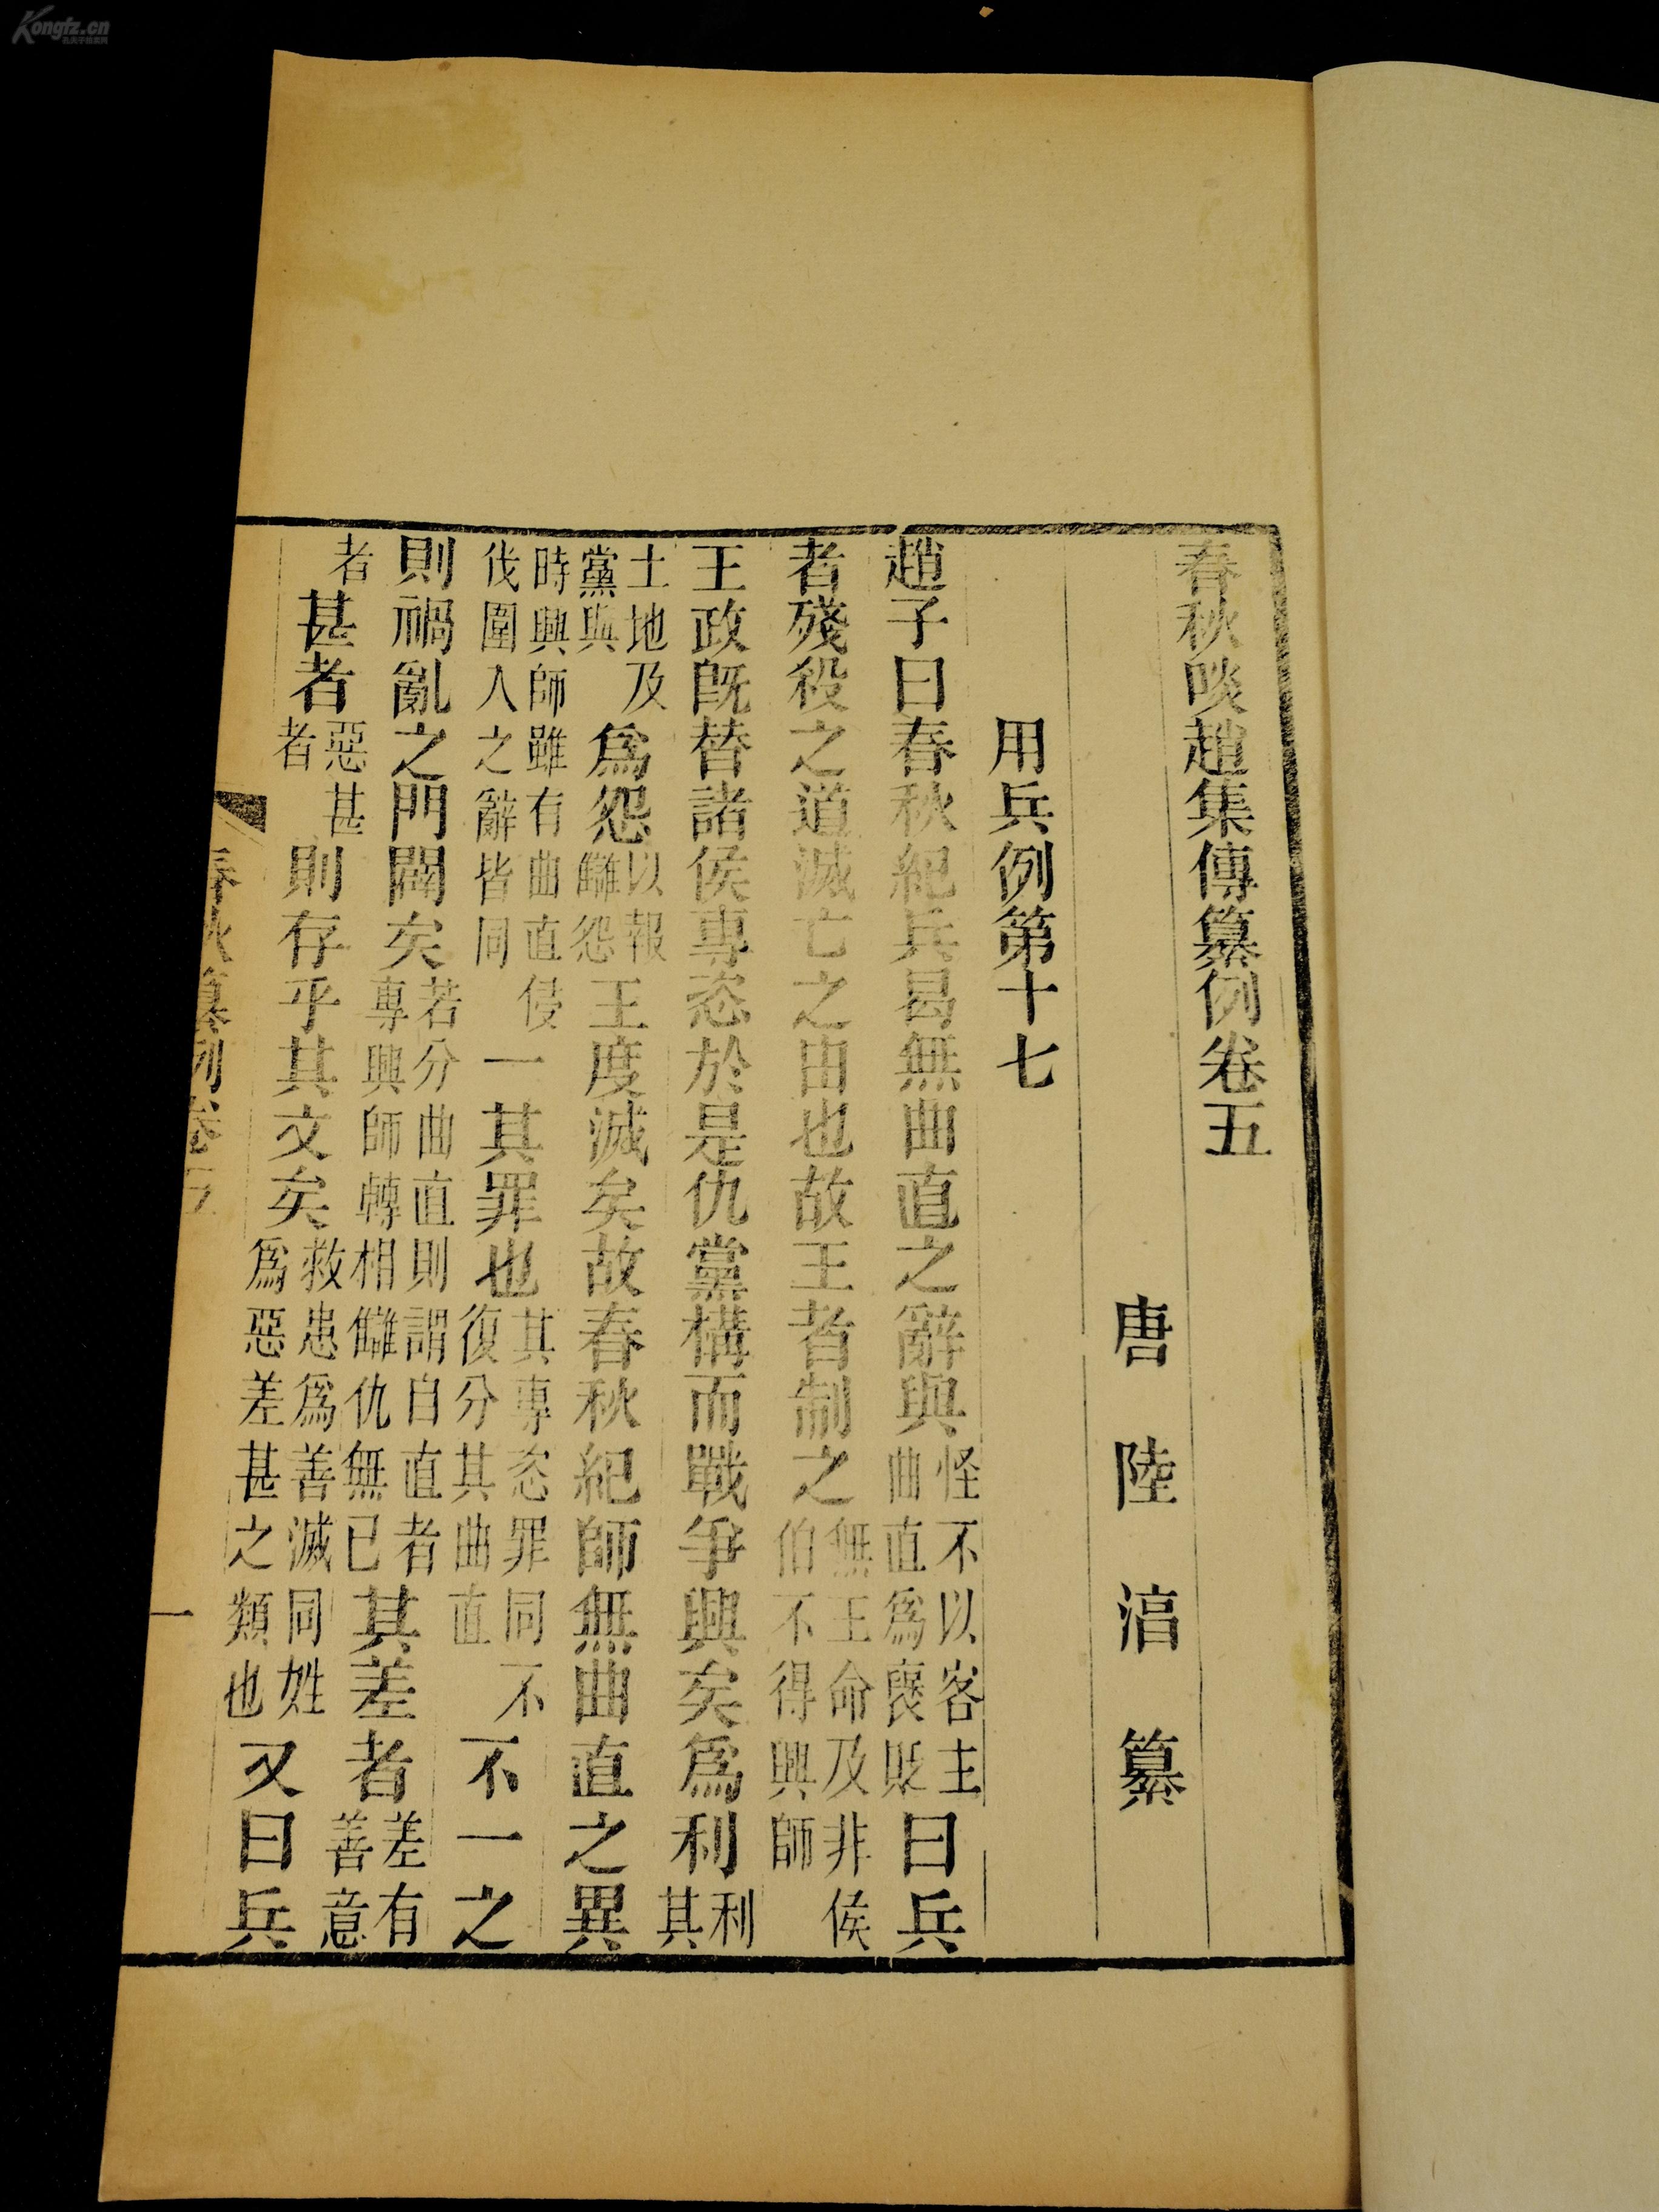 春秋啖趙集傳纂例卷五
唐陸湻纂
用兵例第十七
趙子曰春秋紀兵曷無曲直之辭與怪不以客主曲直爲褒貶曰兵
者殘殺之道滅亡之由也故王者制之無王命及非侯伯不得興師
王政旣替諸侯專恣於是仇黨構而戰爭興矣爲利利其
土地及黨與爲怨以報讎怨王度滅矣故春秋紀師無曲直之異
時興師雖有曲直侵伐圍入之辭皆同一其罪也其專恣罪同不復分其曲直不一之
則禍亂之門闢矣若分曲直則謂自直者專興師轉相讎仇無已其差者差有善意
者甚者惡甚者則存乎其文矣救患爲善滅同姓爲惡差甚之類也又曰兵
春秋纂例卷五
一
Kongfz.cn